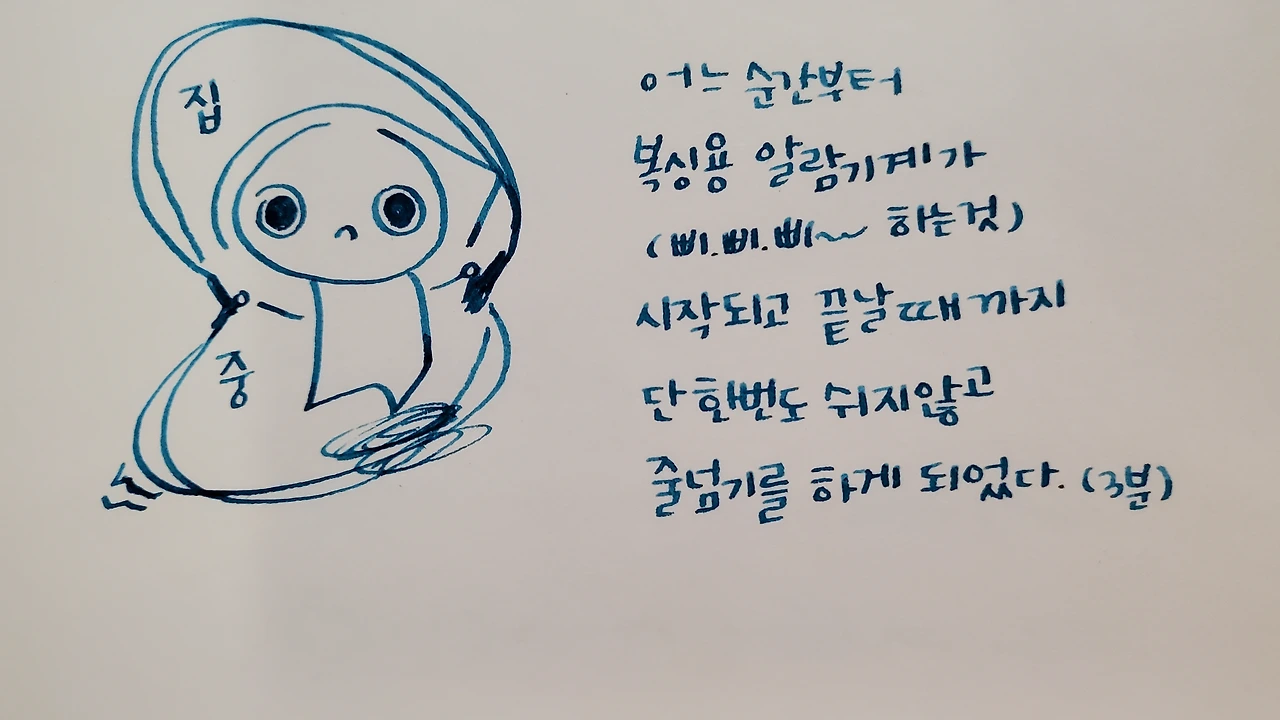 집
중
어느 순간부터
복싱용 알람기계가
(삐.삐.삐~~ 하는것)
시작되고 끝날때 까지
단 한번도 쉬지않고
줄넘기를 하게 되었다. (3분)